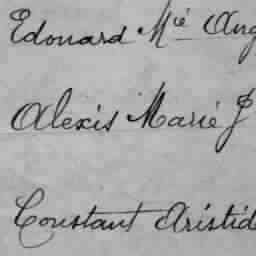 Edouard Mié Aug
Alexis Marie J
Constant Aristid